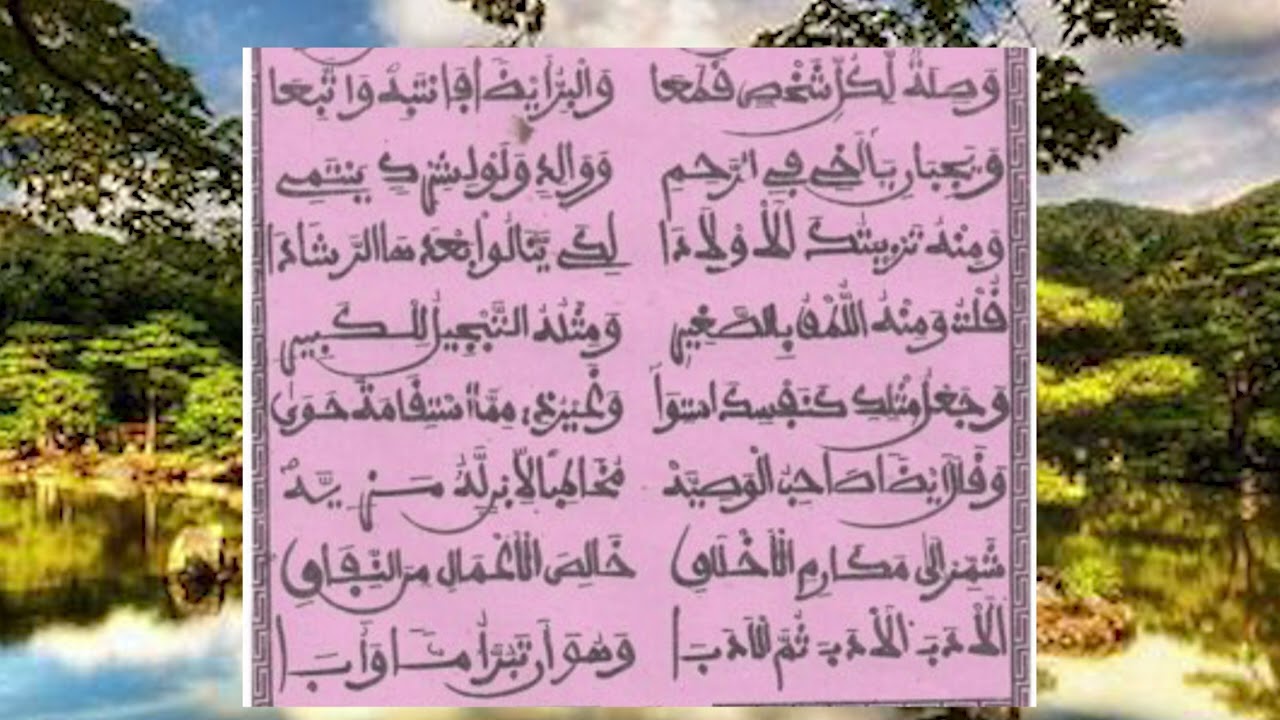 وصلة لكل شخص قطعا والبر أيضا فانتبه واتبعا
يا أخي في الرحم ووالد ولو لشرك ينتمي
ومنه تربيتك الأولادا لكي ينالوا بعدها الرشادا
قلت ومنه اللطف بالصغير ومثله التبجيل للكبير
وجعل مثلك كنفسك استوا وغيره مما استقامة حوى
وقال أيضا صاحب الوصية مخاطبا لابن له مزية
شمر إلى مكارم الأخلاق خالص الأعمال من النفاق
الأدب الأدب ثم الأدبا وهو أن تبر أما وأبا